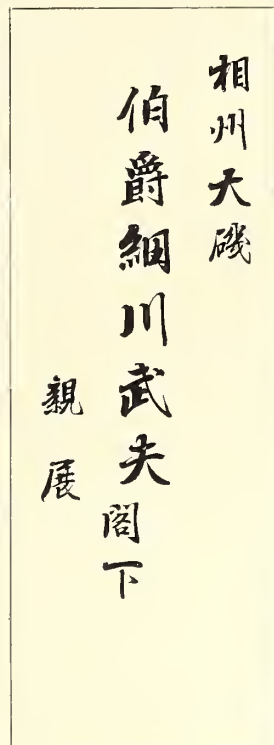 相州大磯
伯爵細川武夫閣下
親展